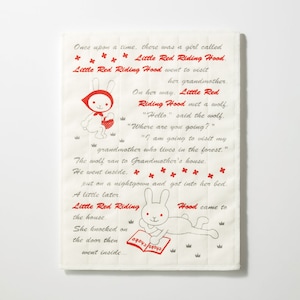 Once upon a time, there was a girl called
Little Red Riding Hood
Little Red Riding Hood went to visit
her grandmother.
On her way, Little Red
Riding Hood met a wolf.
"Hello" said the wolf.
"Where are you going?"
"I am going to visit my
grandmother who lives in the forest."
The wolf ran to Grandmother's house.
He went inside,
put on a nightgown and got into her bed.
A little later
Little Red Riding Hood came to
the house.
She knocked on
the door then
went inside...